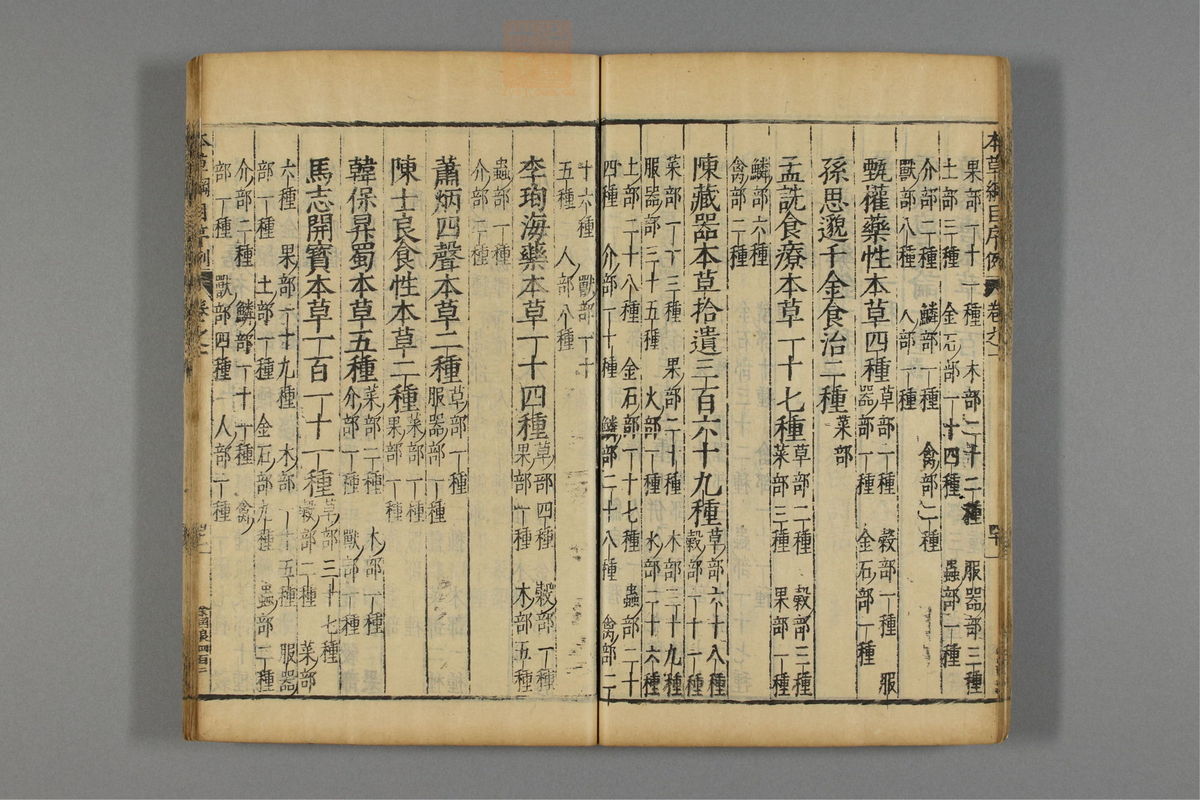 本草綱目序例 卷之一
果部一十一種 木部二十二種 服器部三種
土部三種 金石部一十四種 蟲部一種
介部二種 鱗部一種 禽部二種
獸部八種 人部一種
甄權藥性本草四種 草部一種 穀部一種 服
器部一種 金石部一種
孫思邈千金食治二種 菜部
孟詵食療本草一十七種 草部二種 穀部三種
菜部三種 果部一種
鱗部六種
禽部二種
陳藏器本草拾遺三百六十九種 草部六十八種
穀部一十一種
菜部一十三種 果部二十種 木部三十九種
服器部三十五種 火部一種 水部二十六種
土部二十八種 金石部一十七種 蟲部二十
四種 介部一十種 鱗部二十八種 禽部二
十六種 獸部一十
五種 人部八種
李珣海藥本草一十四種 草部四種 穀部一種
果部一種 木部五種
蟲部一種
介部二種
蕭炳四聲本草二種 草部一種
服器部一種
陳士良食性本草二種 菜部一種
果部一種
韓保昇蜀本草五種 菜部二種 木部一種
介部一種 獸部一種
馬志開寶本草一百一十一種 草部三十七種
穀部二種 菜部
六種 果部一十九種 木部一十五種 服器
部一種 土部一種 金石部九種 蟲部二種
介部二種 鱗部一十一種 禽
部一種 獸部四種 人部一種
本草綱目序例 卷之一